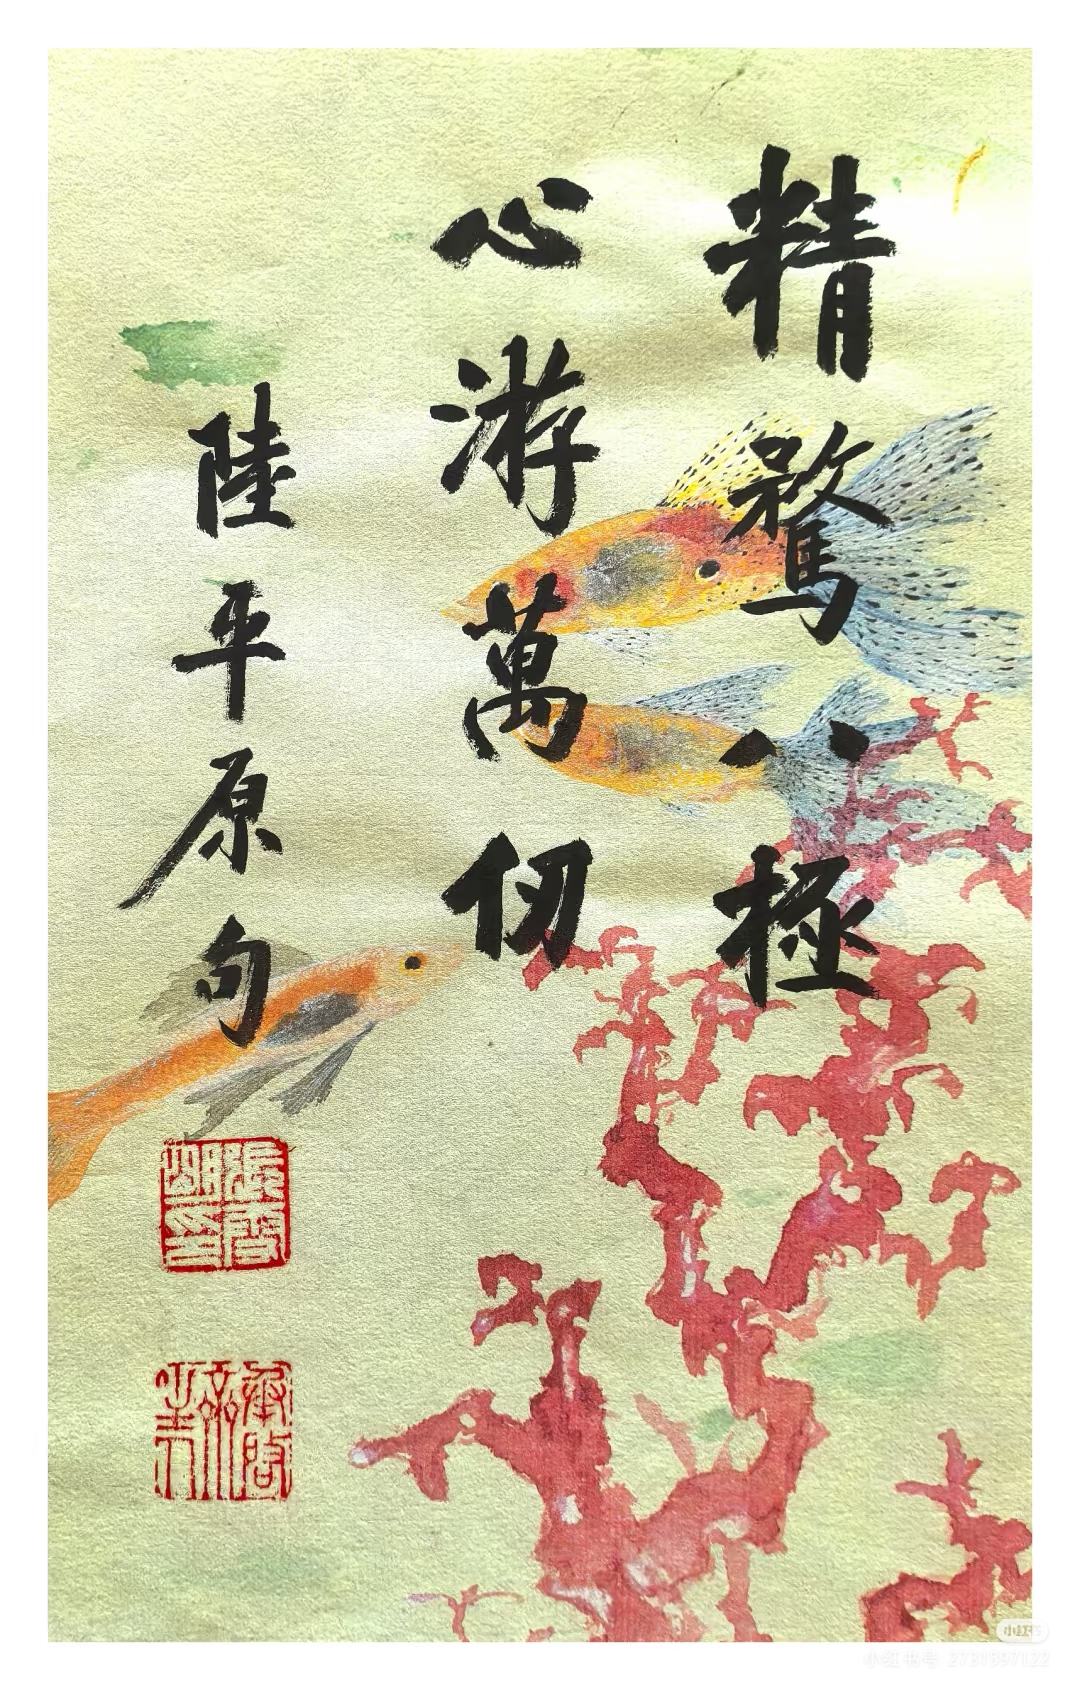 精騖八極
心游萬仞
陸平原句
小红书
小红书号 2731597122